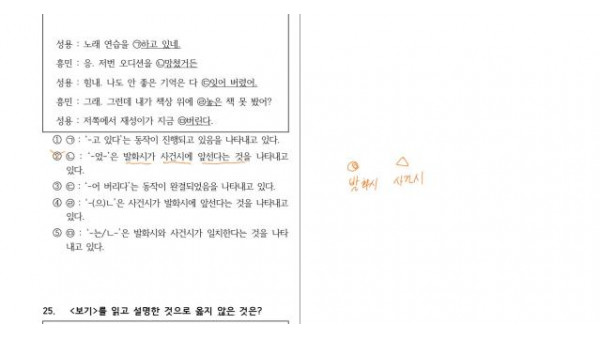 성용 : 노래 연습을 ㉠하고 있네.
흥민 : 응. 저번 오디션을 ㉡망쳤거든
성용 : 힘내. 나도 안 좋은 기억은 다 ㉢잊어 버렸어.
흥민 : 그래. 그런데 내가 책상 위에 ㉣놓은 책 못 봤어?
성용 : 저쪽에서 재성이가 지금 ㉤버린다.
① ㉠ : ‘-고 있다’는 동작이 진행되고 있음을 나타내고 있다.
② ㉡ : ‘-었-’은 발화시가 사건시에 앞선다는 것을 나타내고
있다.
③ ㉢ : ‘-어 버리다’는 동작이 완결되었음을 나타내고 있다.
④ ㉣ : ‘-(으)ㄴ’은 사건시가 발화시에 앞선다는 것을 나타내고
있다.
⑤ ㉤ : ‘-는/ㄴ-’은 발화시와 사건시가 일치한다는 것을 나타
내고 있다.
발화시 사건시
25. <보기>를 읽고 설명한 것으로 옳지 않은 것은?